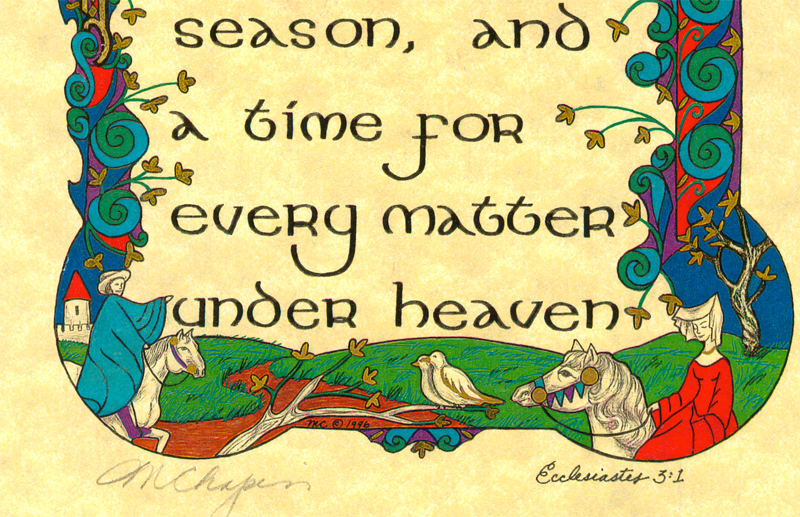 season, and
a time for
every matter
under heaven
M.C. © 1996
M Chapin
Ecclesiastes 3:1